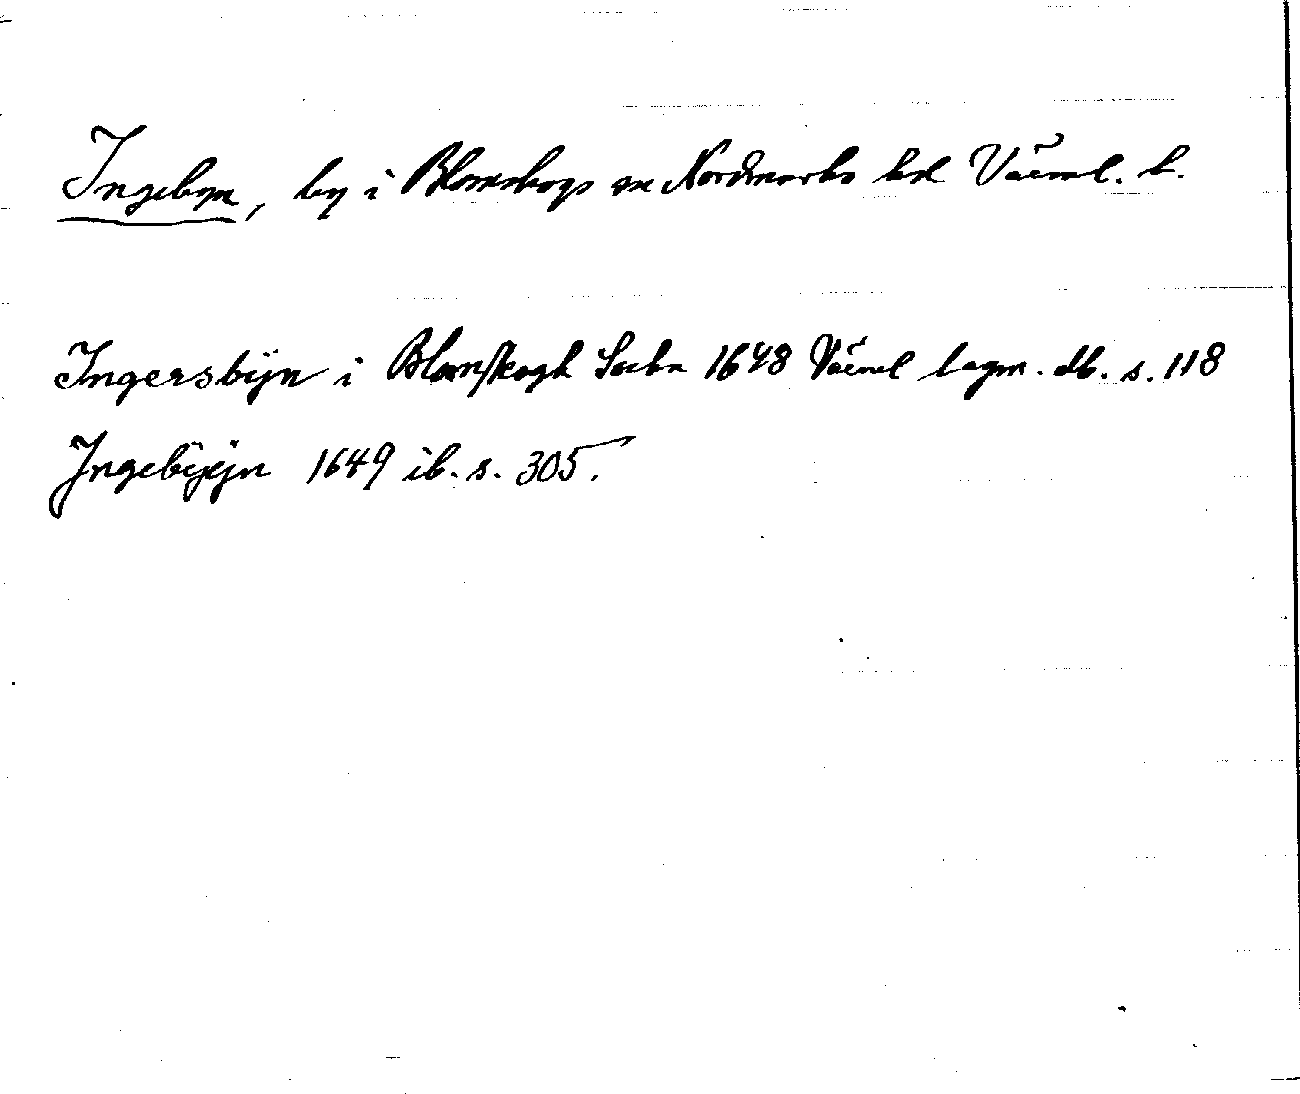 Ingebyn, by i Blomskogs sn Nordmarks hd Värml. l.
Ingersbÿn i Blomskogh Sochn 1648 Värml lagm. db. s. 118
Ingebÿn 1649 ib. s. 305.